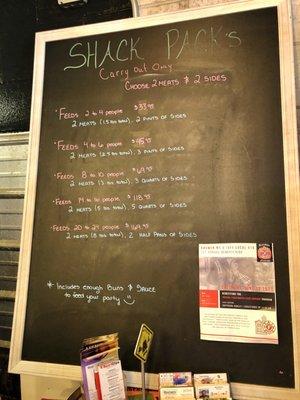 SHACK PACK'S
Carry Out Only
CHOOSE 2 MEATS & 2 SIDES
* FEEDS 2 to 4 people $33.95
2 MEATS (1.5 lbs total), 2 PINTS OF SIDES
* FEEDS 4 to 6 people $45.95
2 MEATS (2.5 lbs total), 3 PINTS OF SIDES
* FEEDS 8 to 10 people $69.95
2 MEATS (3 lbs total), 3 QUARTS OF SIDES
* FEEDS 14 to 16 people $118.95
2 MEATS (5 lbs total), 5 QUARTS OF SIDES
* FEEDS 20 to 24 people $169.95
2 MEATS (8 lbs total), 2 HALF PANS OF SIDES
* INCLUDES enough BUNS & SAUCE
to feed your party